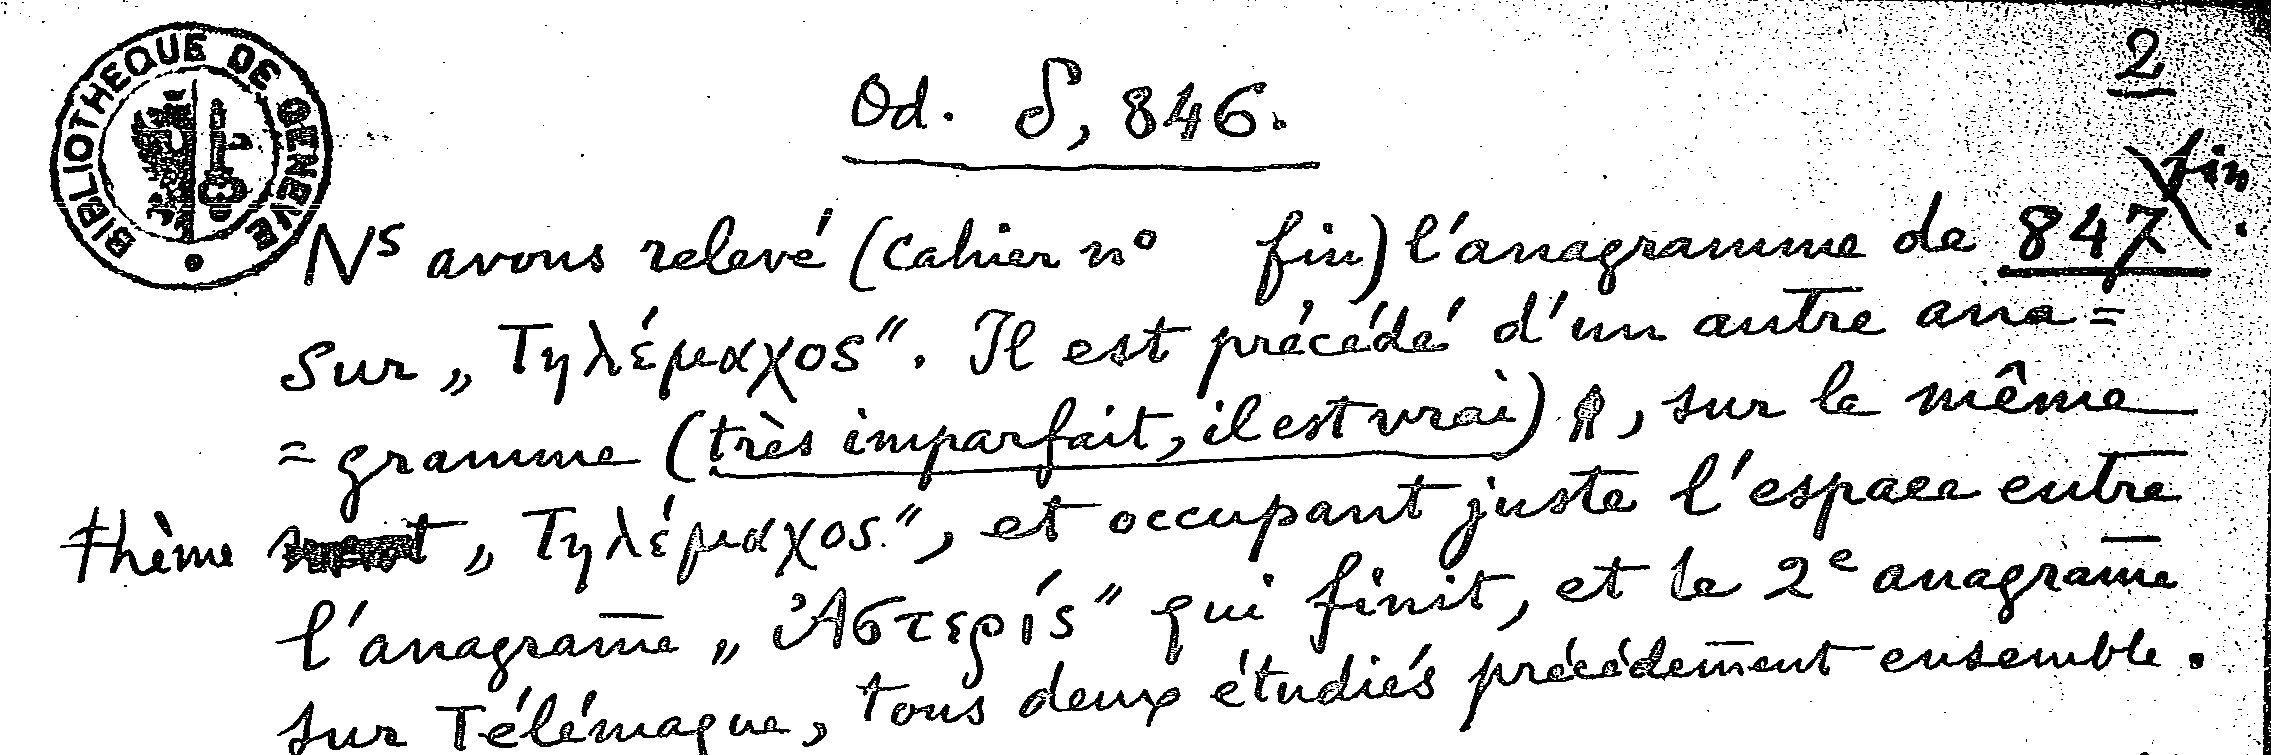 2
BIBLIOTHEQUE DE GENEVE
Od. δ, 846.
fin
Nˢ avons relevé (Cahier nº fin) l'anagramme de 847.
sur „Τηλέμαχος“. Il est précédé d'un autre ana=
=gramme (très imparfait, il est vrai), sur le même
thème „Τηλέμαχος“, et occupant juste l'espace entre
l'anagram̄e „Ἀστερίς“ qui finit, et le 2ᵉ anagram̄e
sur Télémaque, tous deux étudiés précédem̄ent ensemble.